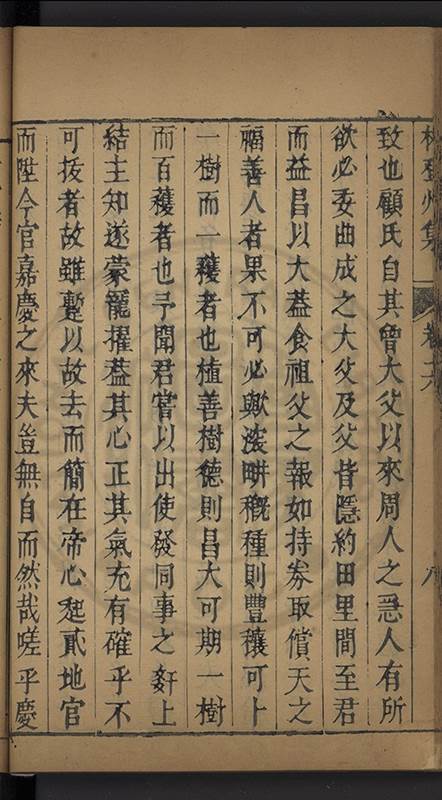 林登州集 卷十六 八
致也顧氏自其曾大父以來周人之急人有所
欲必委曲成之大父及父皆隱約田里間至君
而益昌以大葢食祖父之報如持券取償天之
福善人者果不可必歟滚畊穊種則豐穰可卜
一樹而一穫者也植善樹德則昌大可期一樹
而百穫者也予聞君嘗以出使發同事之姧上
結主知遂蒙寵擢葢其心正其氣充有確乎不
可拔者故雖蹔以故去而簡在帝心起貳地官
而陞今官嘉慶之來夫豈無自而然哉嗟乎慶